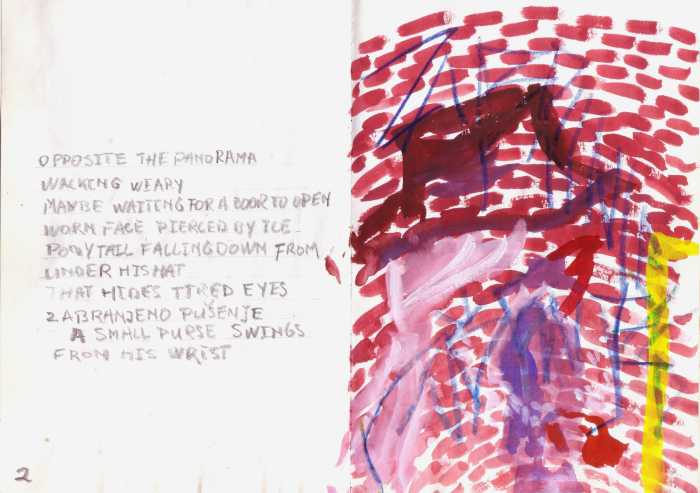 OPPOSITE THE PANORAMA
WALKING WEARY
MAYBE WAITING FOR A DOOR TO OPEN
WORN FACE PIERCED BY ICE
PONYTAIL FALLING DOWN FROM
UNDER HIS HAT
THAT HIDES TIRED EYES
ZABRANJENO PUŠENJE
A SMALL PURSE SWINGS
FROM HIS WRIST
2